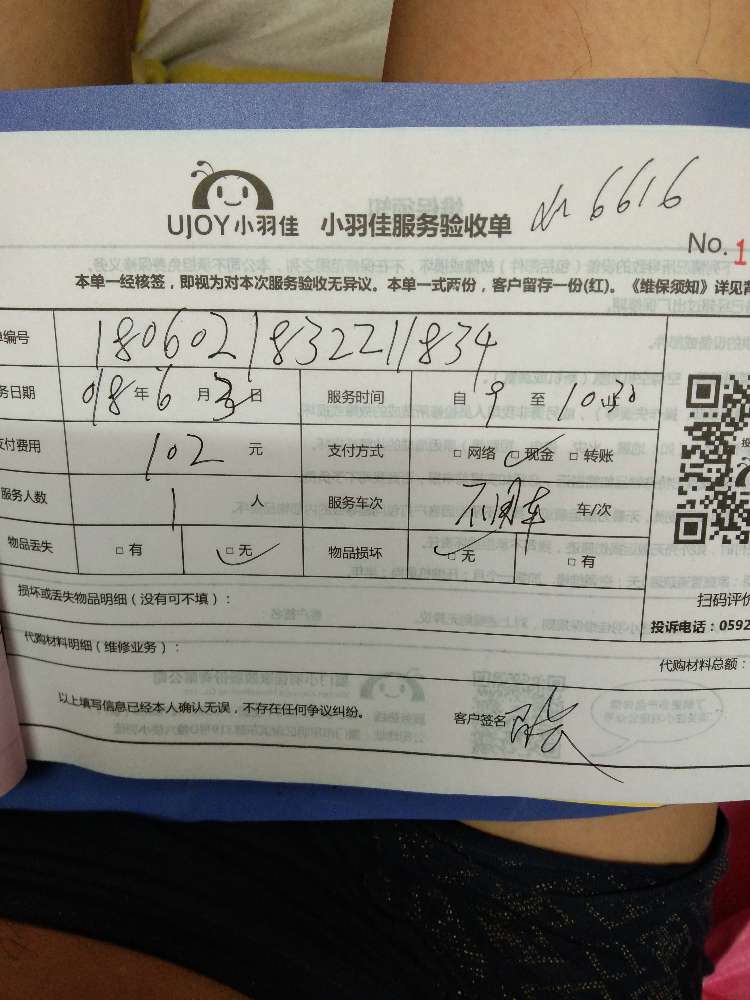 UJOY小羽佳 小羽佳服务验收单 6616
No. 1
本单一经核签，即视为对本次服务验收无异议。本单一式两份，客户留存一份(红)。《维保须知》详见背
单编号 180602183221834
务日期 18年6月3日 服务时间 自9至10:30
支付费用 102元 支付方式 □网络 ☑现金 □转账
服务人数 1人 服务车次 不用车 车/次
物品丢失 □有 ☑无 物品损坏 ☑无 □有
损坏或丢失物品明细（没有可不填）：
扫码评价
投诉电话：0592
代购材料明细（维修业务）：
代购材料总额：
以上填写信息已经本人确认无误，不存在任何争议纠纷。 客户签名